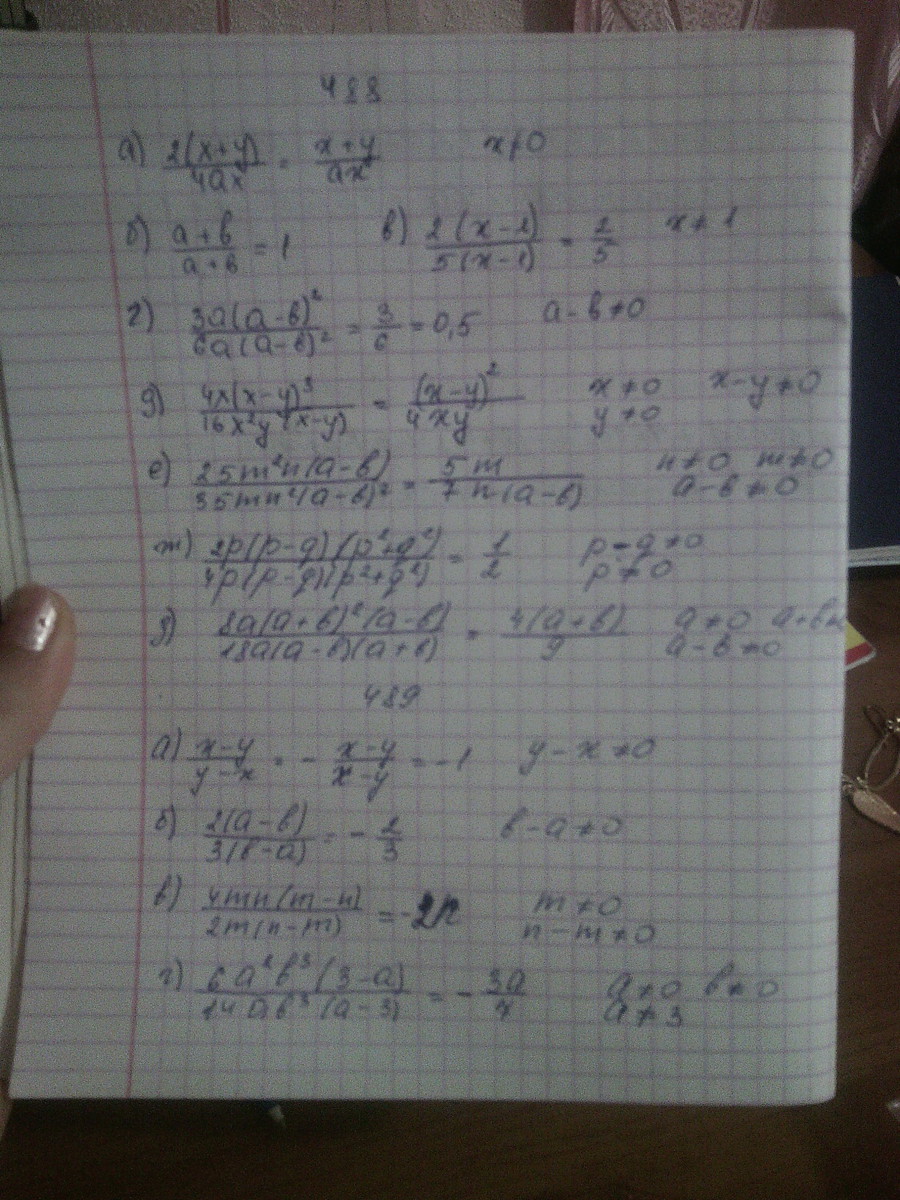 488
а) 2(x+y)/4ax = x+y/ax x≠0
б) a+b/a+b = 1 в) 2(x-1)/5(x-1) = 2/5 x≠1
г) 3a(a-b)²/6a(a-b)² = 3/6 = 0,5 a-b≠0
д) 4x(x-y)³/16x²y(x-y) = (x-y)²/4xy x≠0 x-y≠0
y≠0
е) 25m²n(a-b)/35mn²(a-b)² = 5m/7n(a-b) n≠0 m≠0
a-b≠0
ж) 2p(p-q)(p²+q²)/4p(p-q)(p²+q²) = 1/2 p-q≠0
p≠0
з) 8a(a+b)²(a-b)/18a(a-b)(a+b) = 4(a+b)/9 a≠0 a+b≠
a-b≠0
489
а) x-y/y-x = - x-y/x-y = -1 y-x≠0
б) 2(a-b)/3(b-a) = - 2/3 b-a≠0
в) 4mn(m-n)/2m(n-m) = -2n m≠0
n-m≠0
г) 6a²b³(3-a)/14ab³(a-3) = - 3a/7 a≠0 b≠0
a≠3